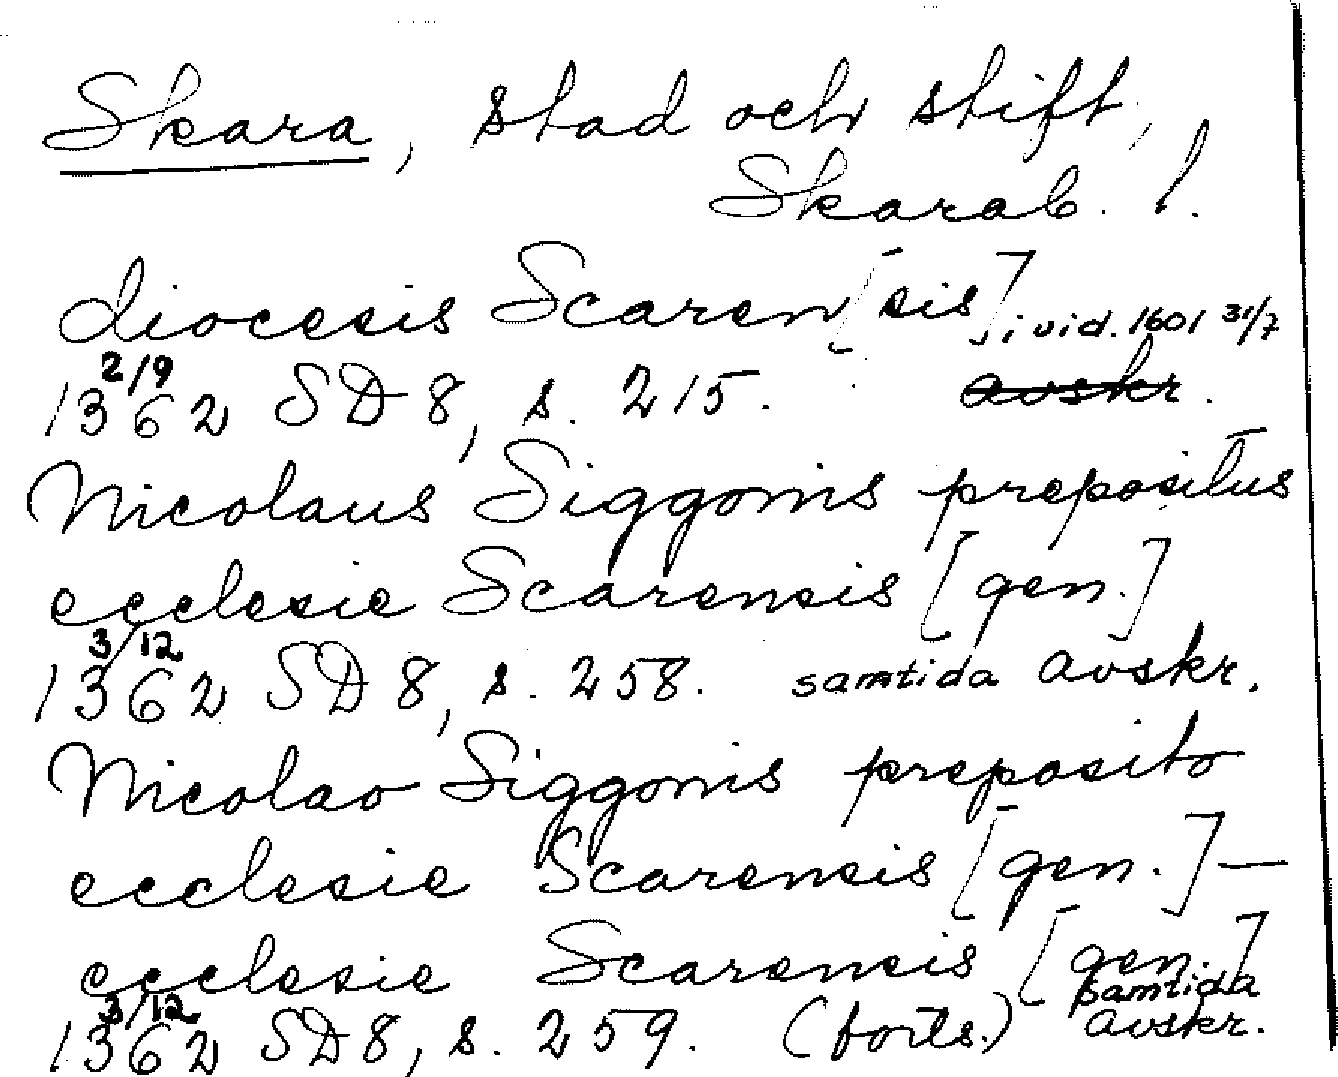 Skara, stad och stift,
Skarab. l.
diocesis Scaren[sis], i vid. 1601 31/7
1362 2/9 SD 8, s. 215. avskr.
Nicolaus Siggonis prepositus
ecclesie Scarensis [gen.]
1362 3/12 SD 8, s. 258. samtida avskr.
Nicolao Siggonis preposito
ecclesie Scarensis [gen.] —
ecclesie Scarensis [gen.]
1362 3/12 SD 8, s. 259. (forts.) samtida avskr.